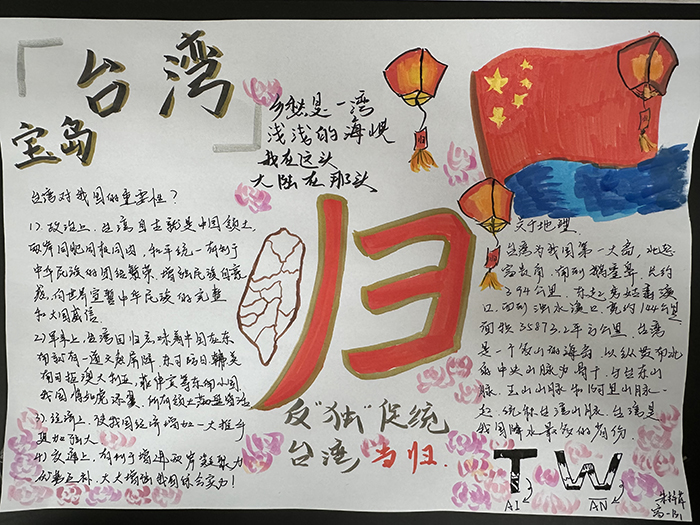 「台湾」
宝岛
乡愁是一湾
浅浅的海峡
我在这头
大陆在那头
台湾对我国的重要性?
1) 政治上,台湾自古就是中国领土,
两岸同胞同根同肉,和平统一有利于
中华民族的团结繁荣,增强民族自豪
感,向世界宣誓中华民族的完整
和大国威信。
2) 军事上,台湾回归意味着中国在东
南部有一道天然屏障,东可防日韩美
南可抵澳大利亚
我国
3) 经济上,使我国经济增加一大推手
更加强大
4) 文化上,有利于增进两岸凝聚力
大大增强我国综合实力!
归
反"独"促统
台湾当归.
关于地理
台湾为我国第一大岛,北起
富贵角,南到鹅銮鼻,长约
394公里.东起三貂
口,西到浊水溪口,宽约144公里
面积35873.2平方公里.台湾
是一个多山的海岛,以纵贯南北
的中央山脉为骨干,与台东山
脉、玉山山脉和阿里山脉一
起,统称台湾山脉,台湾是
我国降水最多的省份.
TW
AI AN